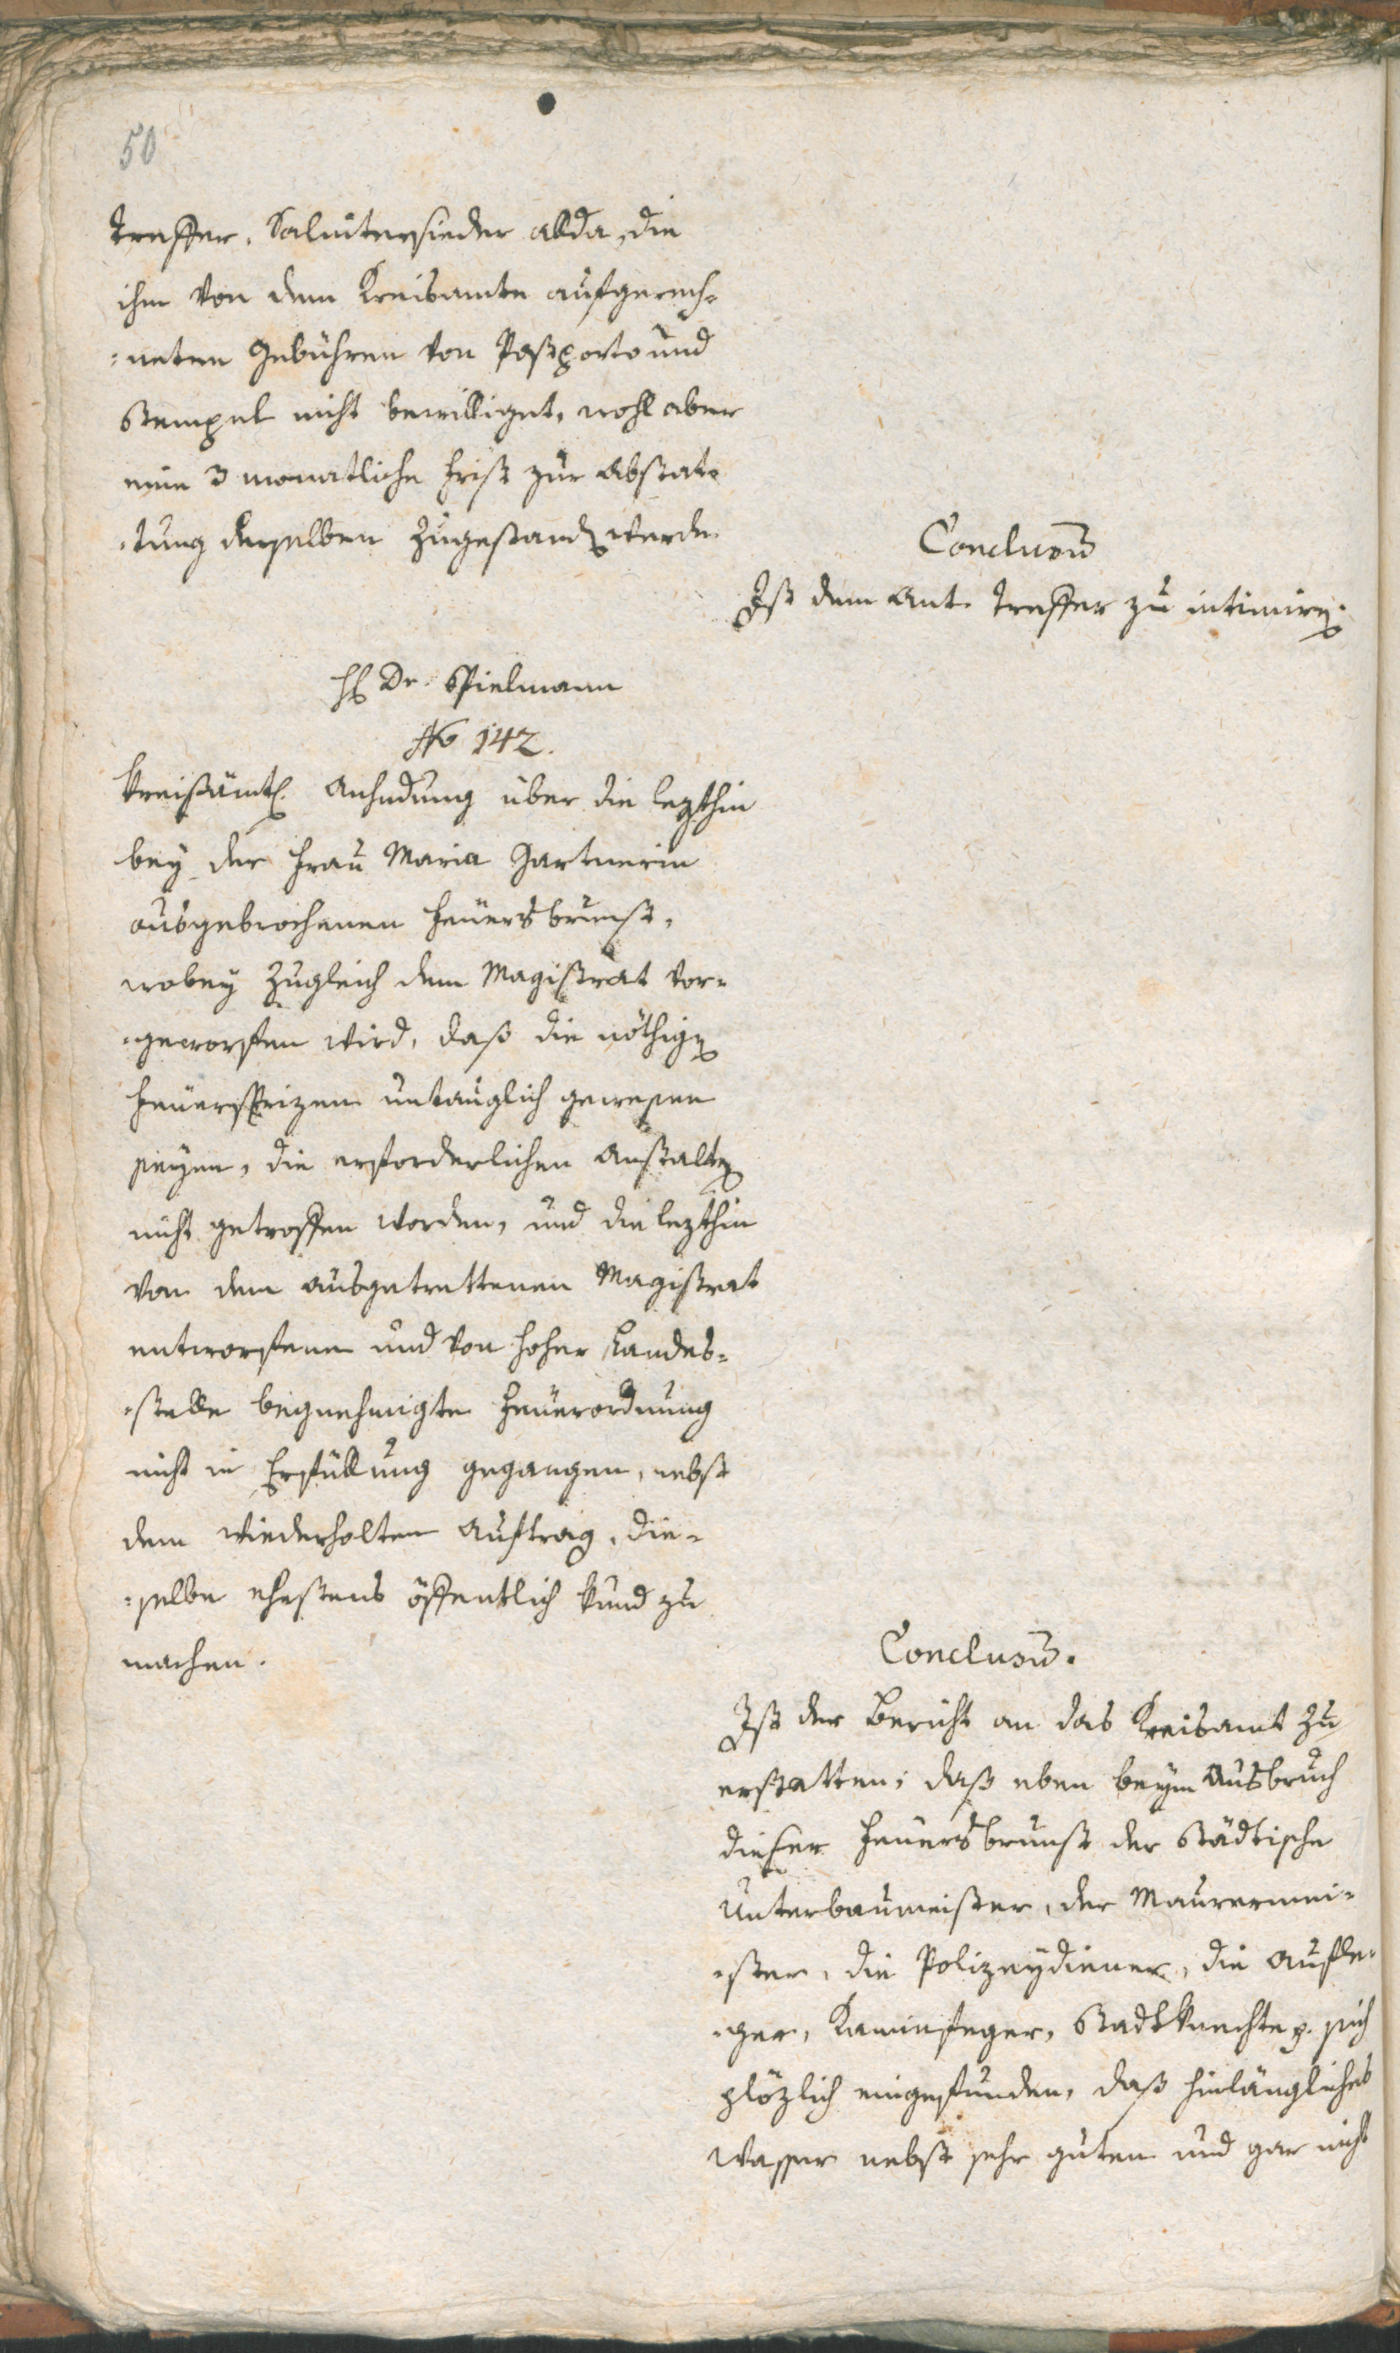 50
Treffer, Salinitersieder allda, die
ihm von dem Kreisamte aufgerech-
-neten Gebühren von Postporto und
Stempel nicht bewilliget, wohl aber
eine 3 monatliche Frist zur Abstat-
-tung derselben zugestanden werde.
Conclusum
Ist dem Ant. Treffer zu intimiren.
H. Dr. Spielmann
No 142.
Kreisämtl. Anhndung über die lezthin
bey der Frau Maria Gartnerin
ausgebrochenen Feuersbrunst,
wobey zugleich dem Magistrat vor-
-geworfen wird, daß die nöthigen
Feuerspritzen untauglich gewesen
seyen, die erforderlichen Anstalten
nicht getroffen worden, und die lezthin
von dem ausgetrettenen Magistrat
entworfene und von hoher Landes-
-stelle begnehmigte Feuerordnung
nicht in Erfüllung gegangen, nebst
dem wiederholten Auftrag, die-
-selbe ehestens öffentlich kund zu
machen.
Conclusum.
Ist der Bericht an das Kreisamt zu
erstatten; daß eben beym Ausbruch
dieser Feuersbrunst der Städtische
Unterbaumeister, der Maurermei-
-ster, die Polizeydiener, die Aufle-
-ger, Kaminfeger, Stadtknechte p. sich
plözlich eingefunden, daß hinlängliches
Wasser nebst sehr guten und gar nicht